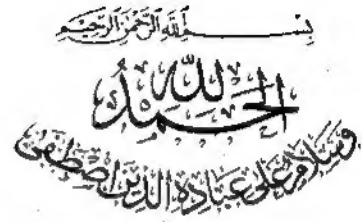 بِسْمِ اللهِ الرَّحْمٰنِ الرَّحِيْمِ
الْحَمْدُ لِلّٰهِ
وَسَلَامٌ عَلٰى عِبَادِهِ الَّذِيْنَ اصْطَفٰى